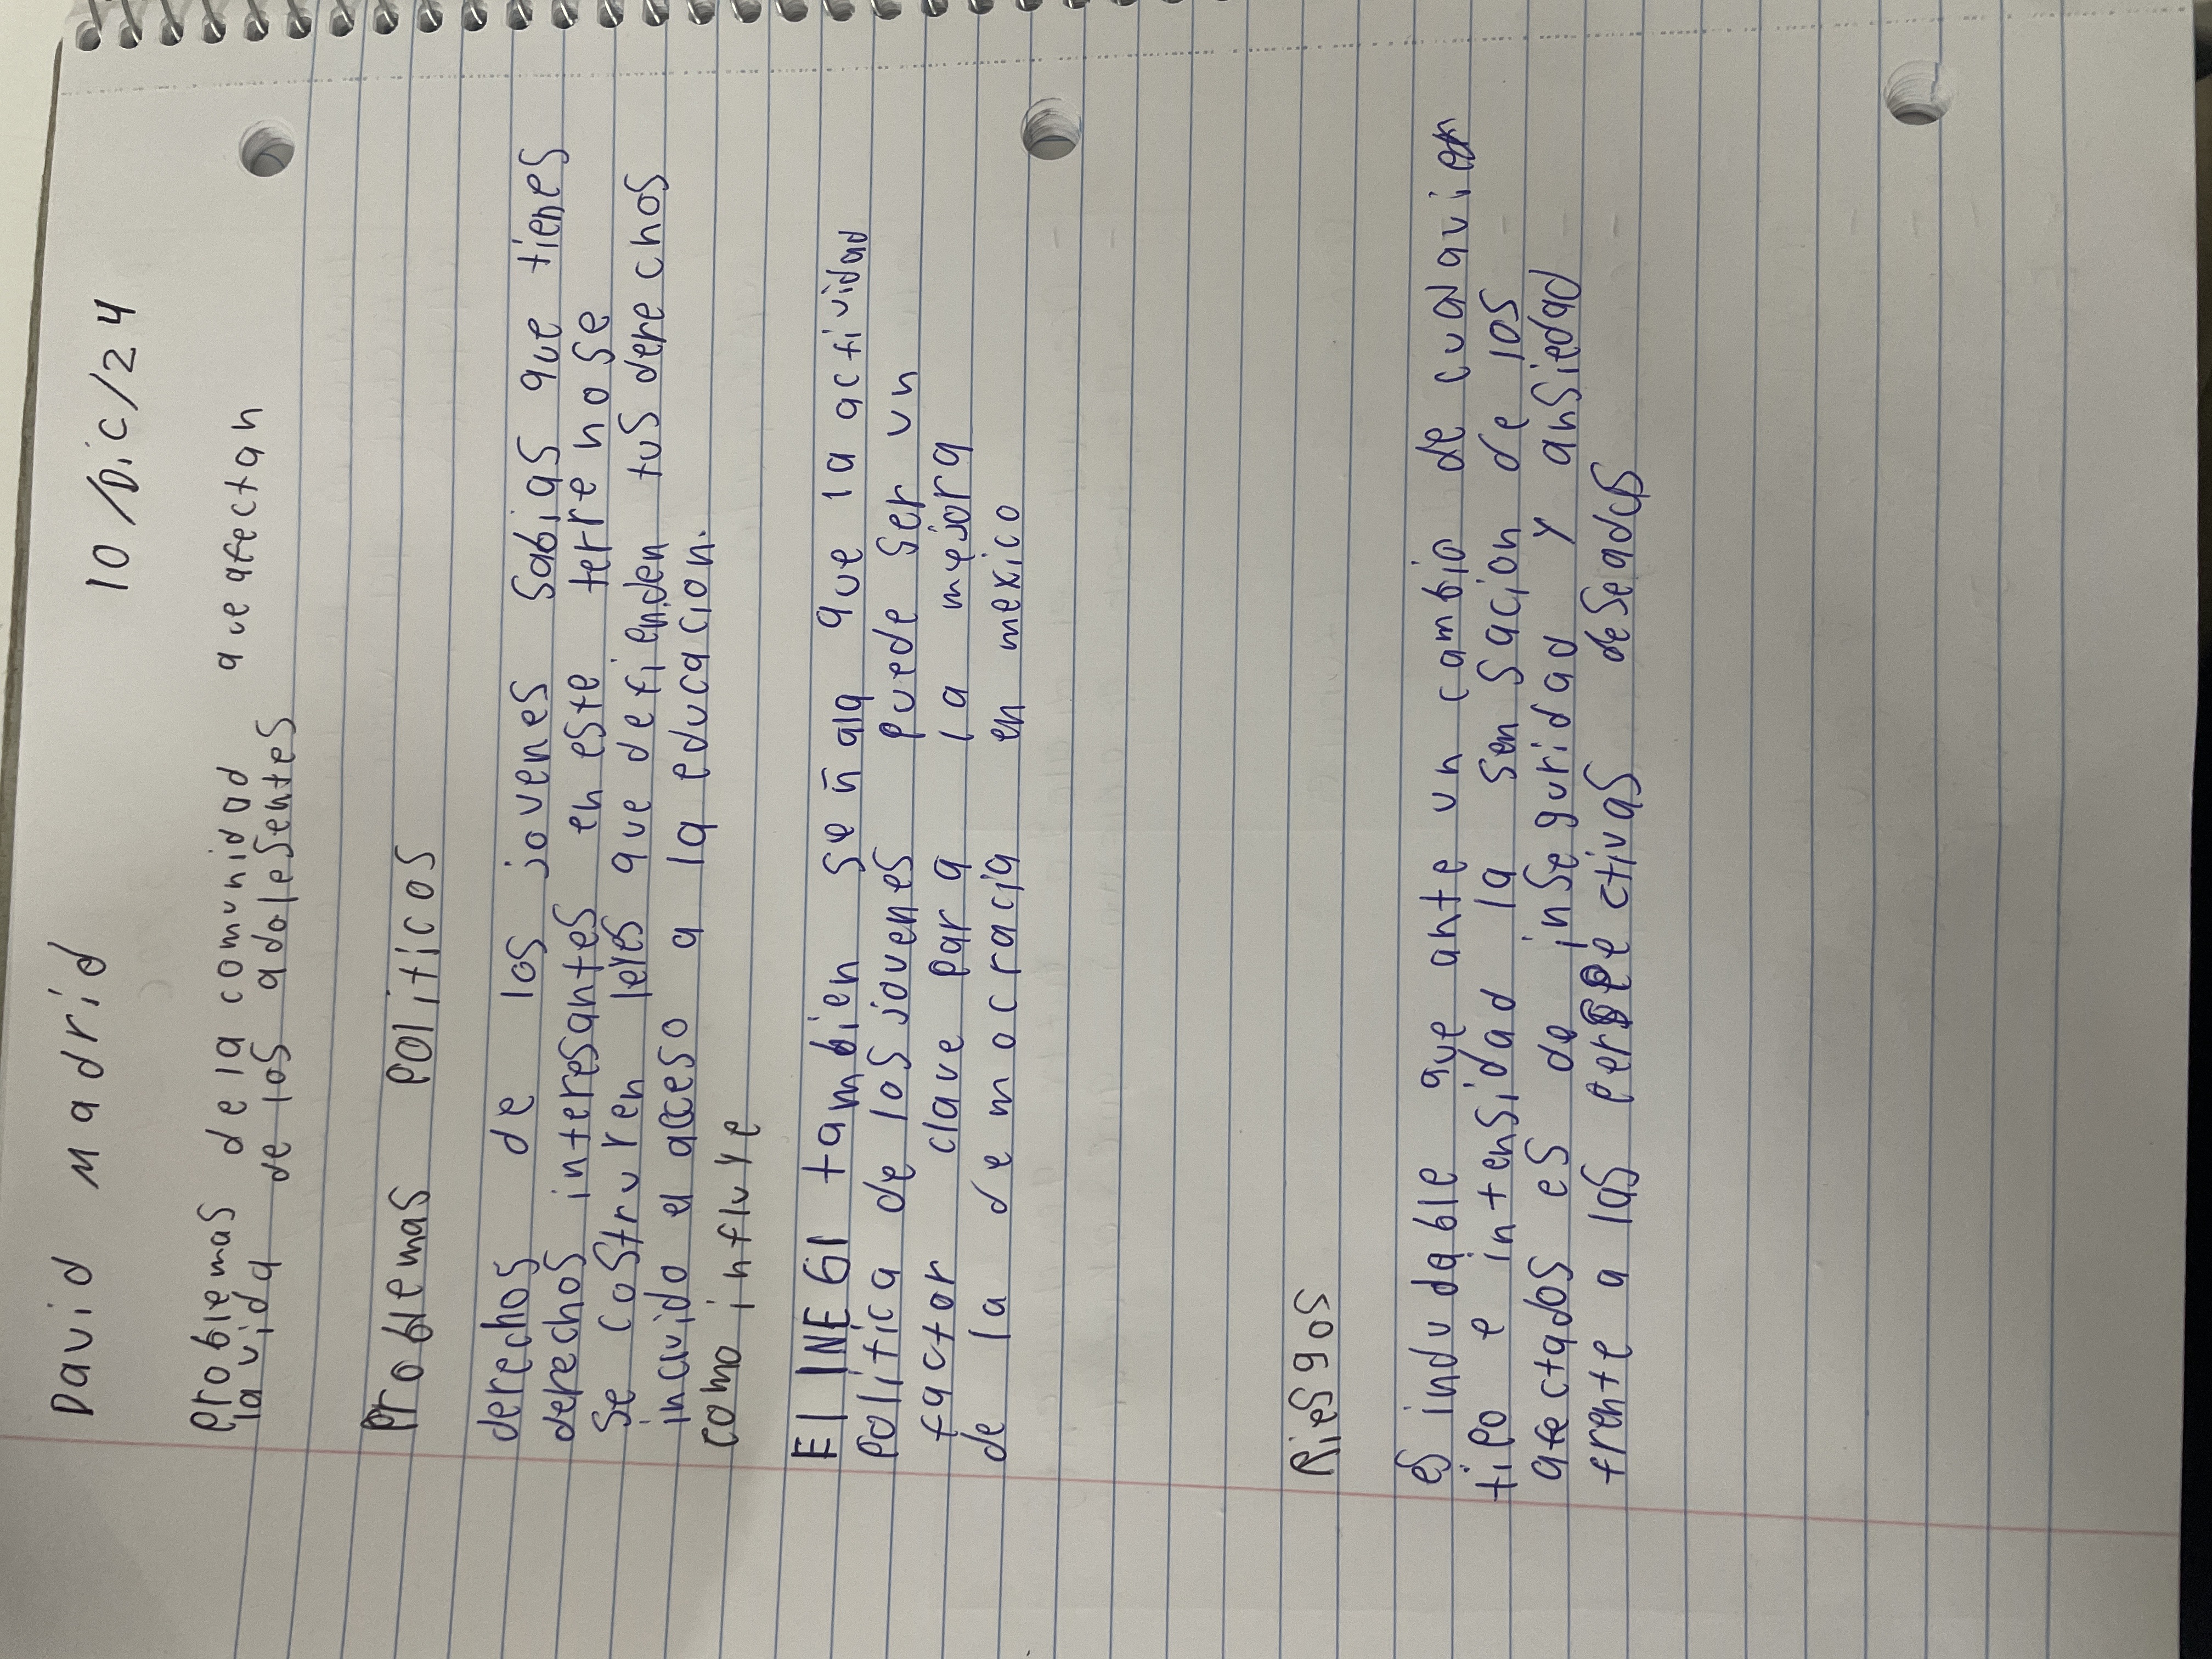 David Madrid 10/Dic/24
Problemas de la comunidad que afectan
la vida de los adolesentes
Problemas Politicos
derechos de los jovenes sabias que tienes
derechos interesantes en este terreno se
se costruyen leyes que defienden tus derechos
incluido el acceso a la educacion.
como influye
El INEGI tambien señala que la actividad
Politica de los jovenes puede ser un
factor clave para la mejora
de la democracia en mexico
Riesgos
es indudable que ante un cambio de cualquier
tipo e intensidad la sensacion de los
afectados es de inseguridad y ansiedad
frente a las perspectivas deseades